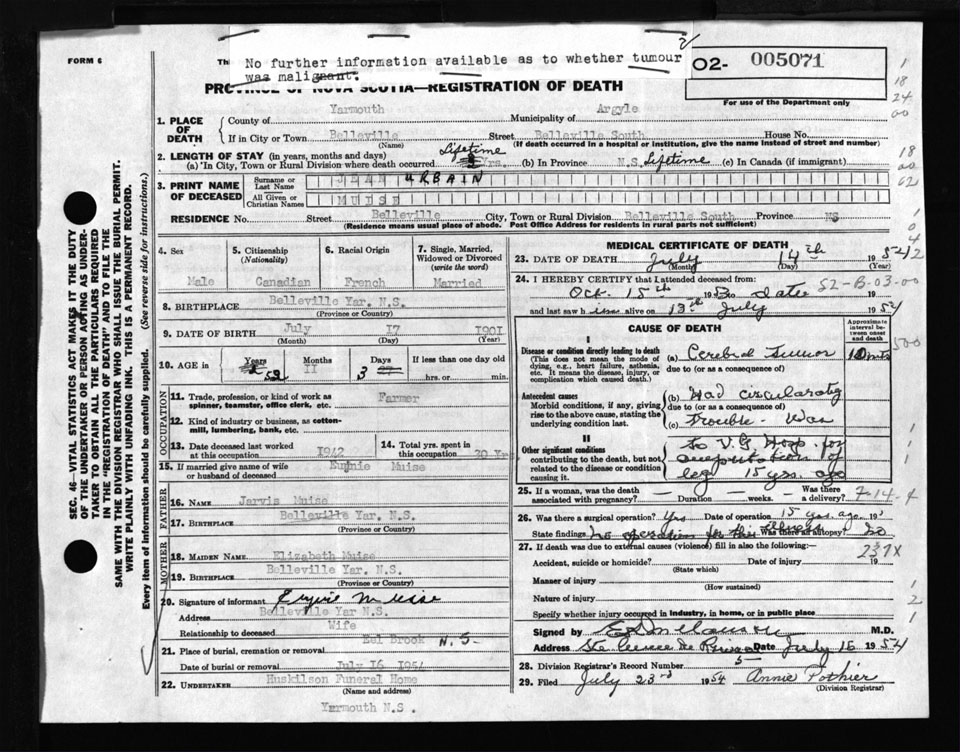 FORM 6
Th
No further information available as to whether tumour
was malignant.
O2- 005071
PROVINCE OF NOVA SCOTIA—REGISTRATION OF DEATH
For use of the Department only
1. PLACE OF DEATH
County of Yarmouth Municipality of Argyle
If in City or Town Belleville Street Belleville South House No.
(Name) (If death occurred in a hospital or institution, give the name instead of street and number)
2. LENGTH OF STAY (in years, months and days)
(a) In City, Town or Rural Division where death occurred Lifetime Yrs. (b) In Province N.S. Lifetime (c) In Canada (if immigrant)
3. PRINT NAME OF DECEASED
Surname or Last Name JEAN URBAIN
All Given or Christian Names MUISE
RESIDENCE No. Street Belleville City, Town or Rural Division Belleville South Province NS
(Residence means usual place of abode. Post Office Address for residents in rural parts not sufficient)
4. Sex Male
5. Citizenship (Nationality) Canadian
6. Racial Origin French
7. Single, Married, Widowed or Divorced (write the word) Married
8. BIRTHPLACE Belleville Yar. N.S.
(Province or Country)
9. DATE OF BIRTH July 17 1901
(Month) (Day) (Year)
10. AGE in Years 52 Months 11 Days 3 If less than one day old
hrs. or min.
OCCUPATION
11. Trade, profession, or kind of work as spinner, teamster, office clerk, etc. Farmer
12. Kind of industry or business, as cotton-mill, lumbering, bank, etc.
13. Date deceased last worked at this occupation 1942
14. Total yrs. spent in this occupation 20 Yr
15. If married give name of wife or husband of deceased Eugnie Muise
FATHER
16. NAME Jarvis Muise
17. BIRTHPLACE Belleville Yar. N.S.
(Province or Country)
MOTHER
18. MAIDEN NAME Elizabeth Muise
19. BIRTHPLACE Belleville Yar. N.S.
(Province or Country)
20. Signature of informant Muise
Address Belleville Yar N.S.
Relationship to deceased Wife
21. Place of burial, cremation or removal Eel Brook N.S.
Date of burial or removal July 16 1954
22. UNDERTAKER Huskilson Funeral Home
(Name and address)
Yarmouth N.S.
MEDICAL CERTIFICATE OF DEATH
23. DATE OF DEATH July 14th 1954
(Month) (Day) (Year)
24. I HEREBY CERTIFY that I attended deceased from:
Oct. 15th 19 to date 52-B-03-00
and last saw him alive on 13th July 1954
CAUSE OF DEATH
Approximate interval between onset and death
I
Disease or condition directly leading to death
(This does not mean the mode of dying, e.g., heart failure, asthenia, etc. It means the disease, injury, or complication which caused death.)
(a) Cerebral Tumor 10 mts
due to (or as a consequence of)
Antecedent causes
Morbid conditions, if any, giving rise to the above cause, stating the underlying condition last.
(b) Had circularatory
due to (or as a consequence of)
(c) Trouble - Was
II
Other significant conditions
contributing to the death, but not related to the disease or condition causing it.
to V.G Hosp. for
amputation of
leg 15 yrs. ago
25. If a woman, was the death associated with pregnancy? Duration weeks. Was there a delivery? 7-14-4
26. Was there a surgical operation? Yes Date of operation 15 yrs. ago 19
State findings no operation for this illness Was there an autopsy? No
27. If death was due to external causes (violence) fill in also the following:— 237X
Accident, suicide or homicide? Date of injury 19
(State which)
Manner of injury
(How sustained)
Nature of injury
Specify whether injury occurred in industry, in home, or in public place
Signed by M.D.
Address Date July 15 1954
28. Division Registrar's Record Number 5
29. Filed July 23rd 1954 Annie Pothier
(Division Registrar)
SEC. 46—VITAL STATISTICS ACT MAKES IT THE DUTY OF THE UNDERTAKER OR PERSON ACTING AS UNDERTAKER TO OBTAIN ALL THE PARTICULARS REQUIRED IN THE "REGISTRATION OF DEATH" AND TO FILE THE SAME WITH THE DIVISION REGISTRAR WHO SHALL ISSUE THE BURIAL PERMIT.
WRITE PLAINLY WITH UNFADING INK. THIS IS A PERMANENT RECORD.
Every item of information should be carefully supplied. (See reverse side for instructions.)